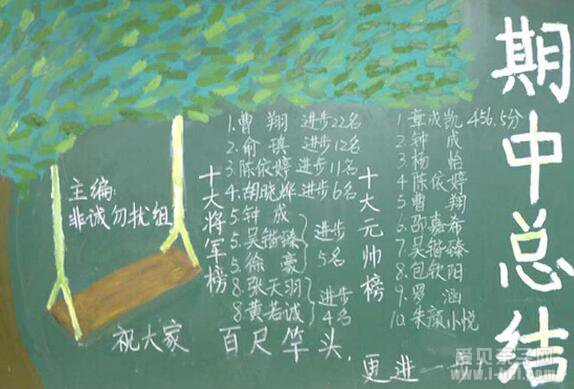 期中总结
主编:
非诚勿扰组
十大将军榜
1.曹翔 进步22名
2.俞琪 进步12名
3.陈依婷 进步11名
4.胡晓烨 进步6名
5.钟成
5.吴锴臻
5.徐豪
进步
5名
8.张天羽
8.黄若诚
进步
4名
十大元帅榜
1.章成凯 456.5分
2.钟成
3.杨怡
4.陈依婷
5.曹翔
6.邵嘉希
7.吴锴臻
8.包钦阳
9.罗涵
10.朱颜小悦
祝大家 百尺竿头,
更进一
爱贝亲子网